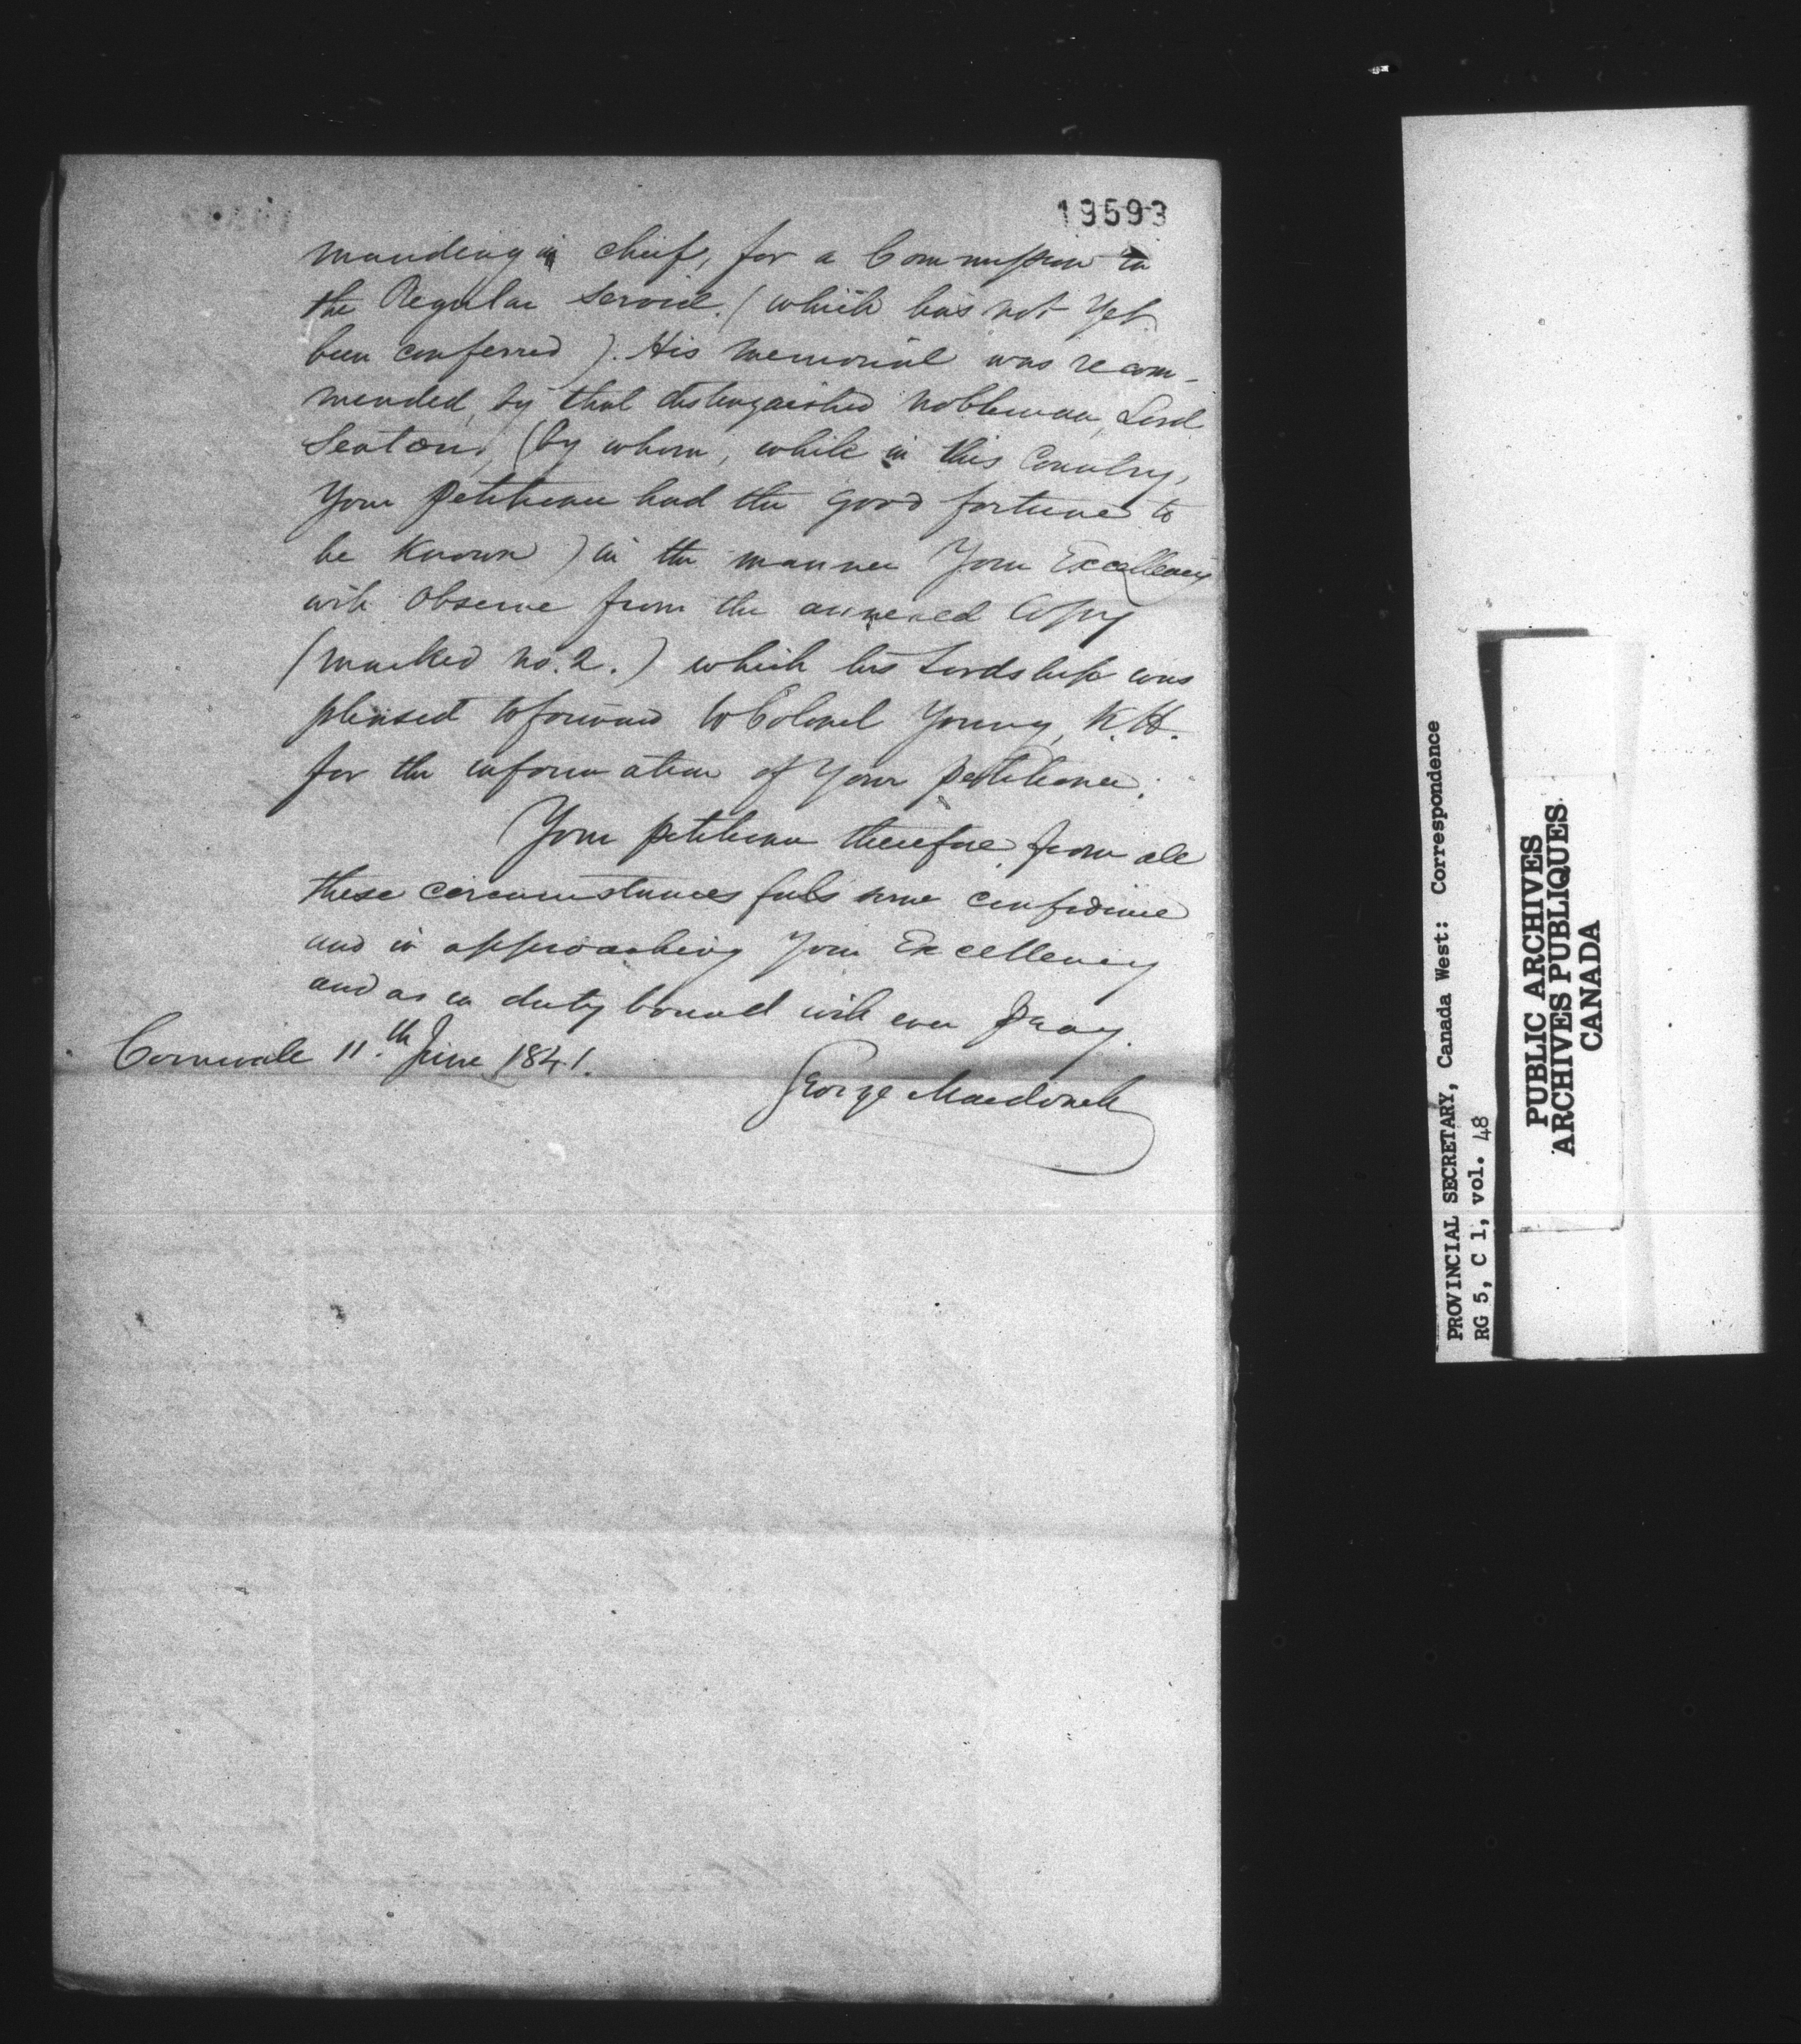 19593
manding in chief, for a Commission in
the Regular Service. (which has not yet
been conferred). His memorial was recom-
mended, by that distinguished nobleman, Lord
Seaton, (by whom, while in this Country,
Your petitioner had the good fortune to
be known) in the manner Your Excellency
will observe from the annexed Copy
(marked No. 2.) which his Lordship was
pleased to forward to Colonel Young, K.H.
for the information of Your petitioner.
Your petitioner therefore from all
these circumstances feels some confidence
and in approaching Your Excellency
and as in duty bound will ever pray.
Cornwall 11.th June 1841.
George Macdonell
PROVINCIAL SECRETARY, Canada West: Correspondence
RG 5, C 1, vol. 48
PUBLIC ARCHIVES
ARCHIVES PUBLIQUES
CANADA